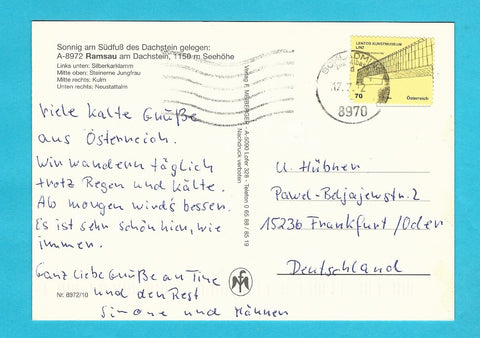 Sonnig am Südfuß des Dachstein gelegen:
A-8972 Ramsau am Dachstein, 1150 m Seehöhe
Links unten: Silberkarklamm
Mitte oben: Steinerne Jungfrau
Mitte rechts: Kulm
Unten rechts: Neustattalm
Viele kalte Grüße
aus Österreich.
Wir wandern täglich
trotz Regen und Kälte.
Ab morgen wird's besser.
Es ist sehr schön hier, wie
immer.
Ganz liebe Grüße an Tine
und den Rest
Simone und Männer
Nr. 8972/10
A-5090 Lofer 329 - Telefon 0 65 88 / 85 19
Nachdruck verboten
LENTOS KUNSTMUSEUM
LINZ
70
Österreich
8970
U. Hübner
Pawel-Beljajewstr. 2
15236 Frankfurt/Oder
Deutschland